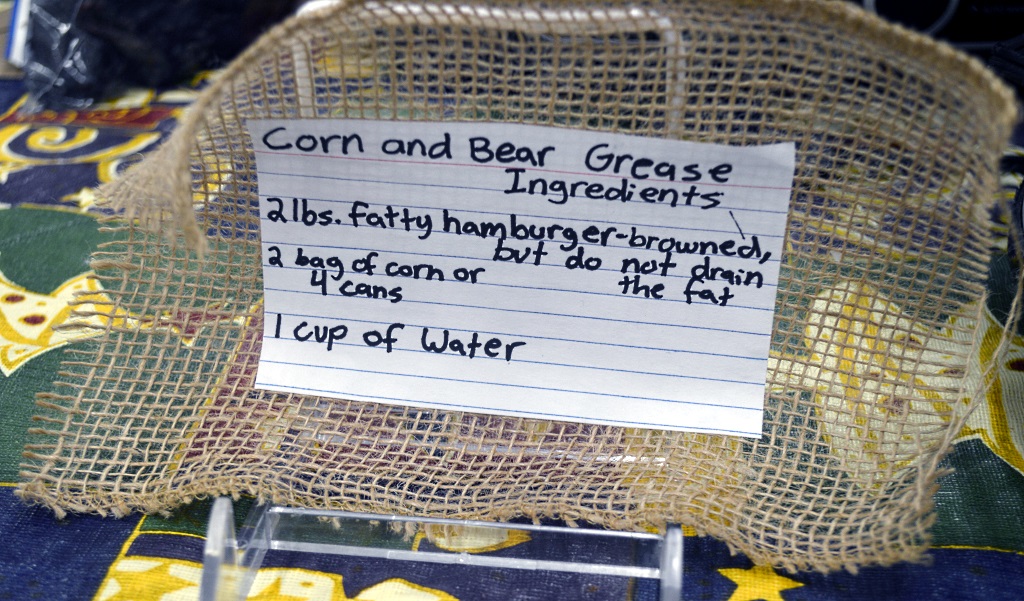 Corn and Bear Grease
Ingredients
2 lbs. fatty hamburger-browned,
but do not drain
the fat
2 bag of corn or
4 cans
1 cup of Water